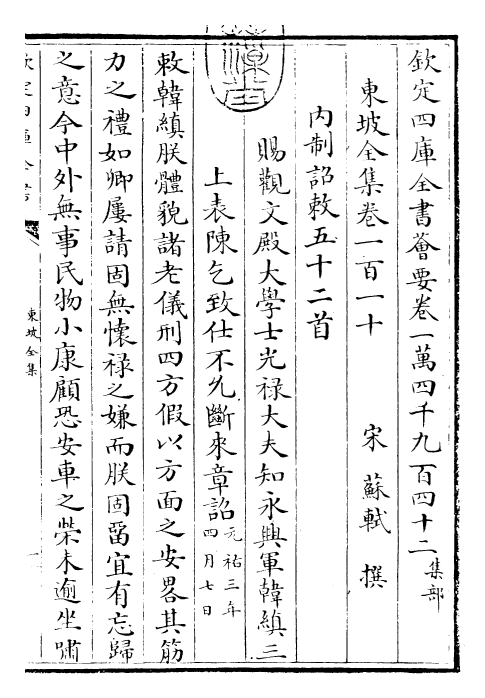 欽定四庫全書薈要卷一萬四千九百四十二集部
東坡全集卷一百一十
宋 蘇軾 撰
内制詔敕五十二首
賜觀文殿大學士光禄大夫知永興軍韓縝三
上表陳乞致仕不允斷來章詔元祐三年四月七日
敕韓縝朕體貌諸老儀刑四方假以方面之安畧其筋
力之禮如卿屢請固無懷禄之嫌而朕固留宜有忘歸
之意今中外無事民物小康顧恐安車之榮未逾坐嘯
欽定四庫全書
東坡全集
一